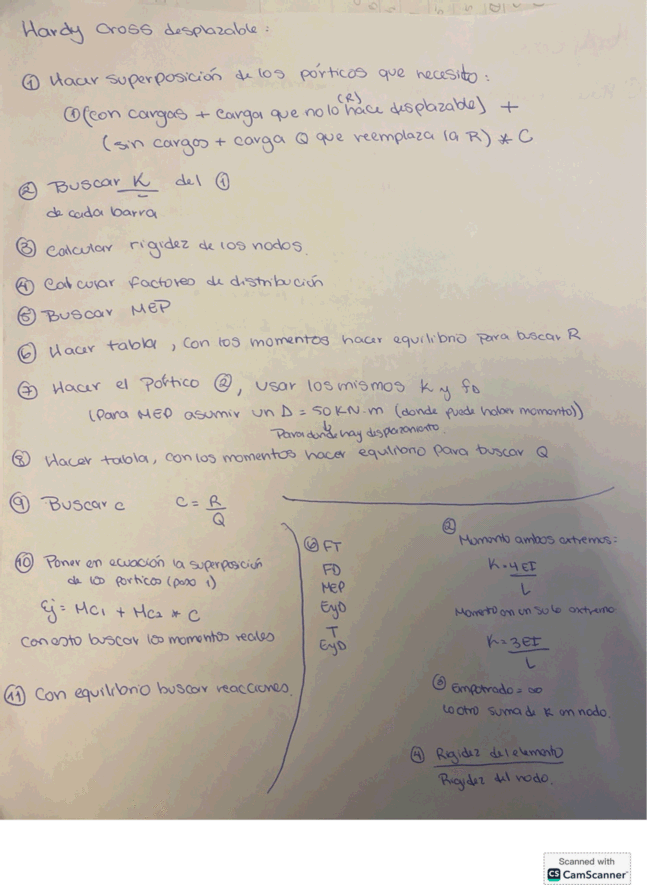 Hardy Cross desplazable:
① Hacer superposición de los pórticos que necesito:
①(con cargas + carga que no lo hace desplazable) +
(R)
(sin cargas + carga Q que reemplaza la R) * C
② Buscar K del ①
de cada barra
③ Calcular rigidez de los nodos.
④ Calcular factores de distribución
⑤ Buscar MEP
⑥ Hacer tabla, con los momentos hacer equilibrio para buscar R
⑦ Hacer el Pórtico ②, usar los mismos K y fD
(Para MEP asumir un Δ = 50 KN.m (donde puede haber momento))
Para donde hay desplazamiento.
⑧ Hacer tabla, con los momentos hacer equilibrio para buscar Q
⑨ Buscar c C = R/Q
⑩ Poner en ecuación la superposición
de los porticos (paso 1)
Ej = Mc1 + Mc2 * C
con esto buscar los momentos reales
⑪ Con equilibrio buscar reacciones.
⑥ FT
FD
MEP
EyD
T
EyD
②
Momento ambos extremos:
K = 4EI
L
Momento en un solo extremo
K = 3EI
L
Empotrado = ∞
Lo otro suma de K en nodo.
④ Rigidez del elemento
Rigidez del nodo.
Scanned with
CS CamScanner